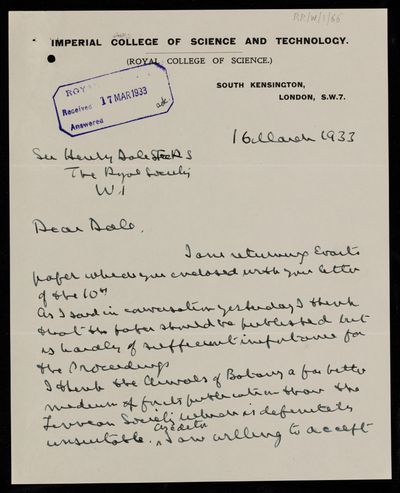 RR/W/1/66
IMPERIAL COLLEGE OF SCIENCE AND TECHNOLOGY.
(ROYAL COLLEGE OF SCIENCE.)
SOUTH KENSINGTON,
LONDON, S.W.7.
ROY
Received 17 MAR 1933
Answered
16 March 1933
Sir Henry Dale Sec R S
The Royal Society
W 1
Dear Dale,
I am returning
paper which you enclosed with your letter
of the 10th
As I said in conversation yesterday I think
that his paper should be published but
is hardly of sufficient importance for
the Proceedings
I think the Annals of Botany a far better
medium of publication than the
Linnean Society which is definitely
unsuitable. As editor I am willing to accept